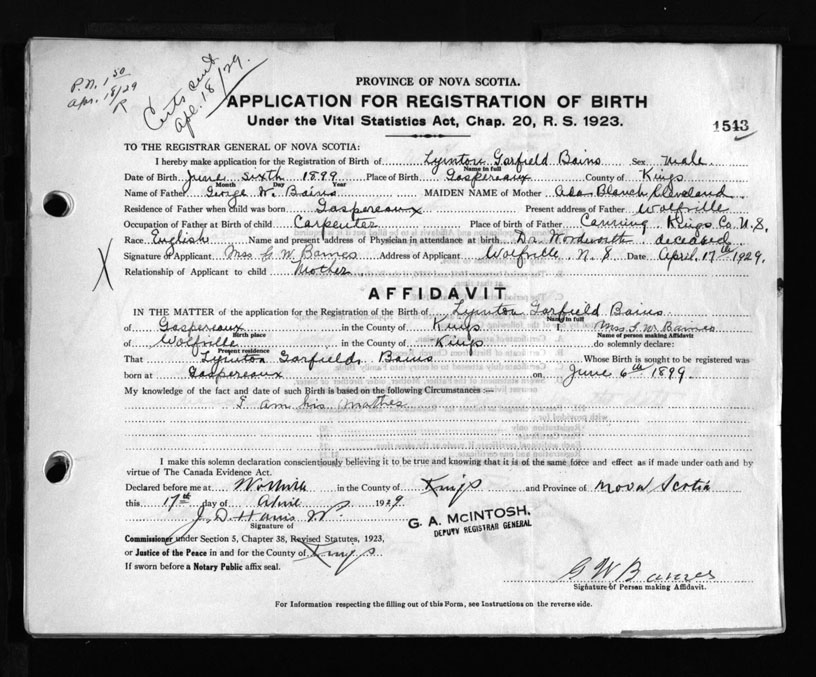 P.N. 1 50
Apr. 18/29
R
Certs sent
Apl. 18/29.
PROVINCE OF NOVA SCOTIA.
APPLICATION FOR REGISTRATION OF BIRTH
Under the Vital Statistics Act, Chap. 20, R. S. 1923.
1543
TO THE REGISTRAR GENERAL OF NOVA SCOTIA:
I hereby make application for the Registration of Birth of Lynton Garfield Bains Sex Male
Name in full
Date of Birth June sixth 1899 Place of Birth Gaspereaux County of Kings
Month Day Year
Name of Father George W. Bains MAIDEN NAME of Mother Ada Blanch Cleveland
Residence of Father when child was born Gaspereaux Present address of Father Wolfville
Occupation of Father at Birth of child Carpenter Place of birth of Father Canning Kings Co. N.S.
Race English Name and present address of Physician in attendance at birth Dr. Wordsworth deceased
Signature of Applicant Mrs G. W. Baines Address of Applicant Wolfville N. S. Date April 17th 1929.
Relationship of Applicant to child Mother
X
AFFIDAVIT
IN THE MATTER of the application for the Registration of the Birth of Lynton Garfield Bains
Name in full
of Gaspereaux in the County of Kings I, Mrs G. W. Baines
Birth place Name of person making Affidavit
of Wolfville in the County of Kings do solemnly declare:
Present residence
That Lynton Garfield Bains Whose Birth is sought to be registered was
born at Gaspereaux on June 6th 1899.
My knowledge of the fact and date of such Birth is based on the following Circumstances :—
I am his Mother
I make this solemn declaration conscientiously believing it to be true and knowing that it is of the same force and effect as if made under oath and by
virtue of The Canada Evidence Act.
Declared before me at Wolfville in the County of Kings and Province of Nova Scotia
this 17th day of April 1929
J. D. Harris
Signature of
G. A. McINTOSH,
DEPUTY REGISTRAR GENERAL
Commissioner under Section 5, Chapter 38, Revised Statutes, 1923,
or Justice of the Peace in and for the County of Kings
If sworn before a Notary Public affix seal.
G W Baines
Signature of Person making Affidavit.
For Information respecting the filling out of this Form, see Instructions on the reverse side.